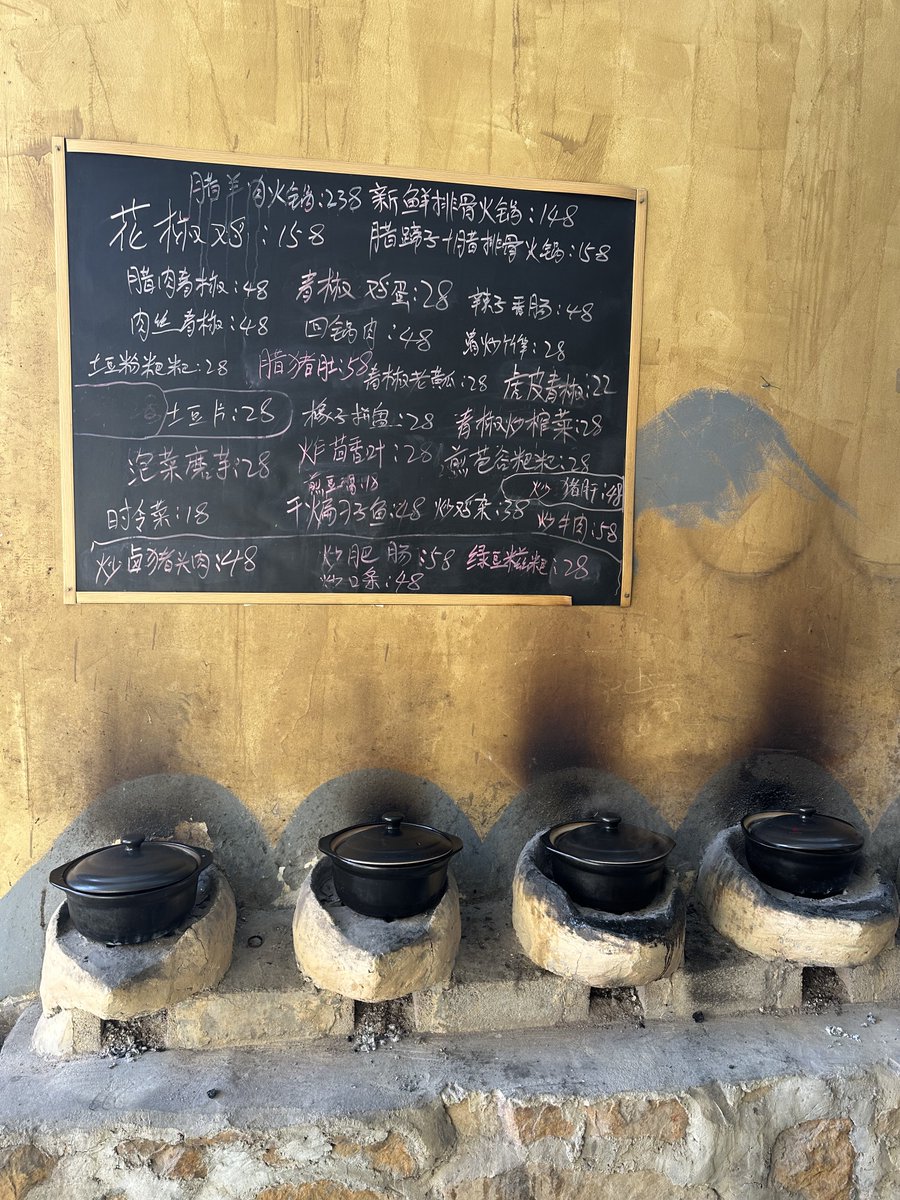 腊羊肉火锅:238 新鲜排骨火锅:148
花椒鸡:158 腊蹄子+腊排骨火锅:158
腊肉青椒:48 青椒鸡蛋:28 辣子香肠:48
肉丝青椒:48 回锅肉:48 清炒竹笋:28
土豆粉粑粑:28 腊猪肚:58 青椒老黄瓜:28 虎皮青椒:22
土豆片:28 橡子拼盘:28 青椒炒榨菜:28
泡菜磨芋:28 炸茴香叶:28 煎苞谷粑粑:28
煎豆腐:18 炒猪肝:48
时令菜:18 干煸刁子鱼:48 炒鸡杂:38 炒牛肉:58
炒卤猪头肉:48 炒肥肠:58 绿豆糍粑:28
炒口条:48